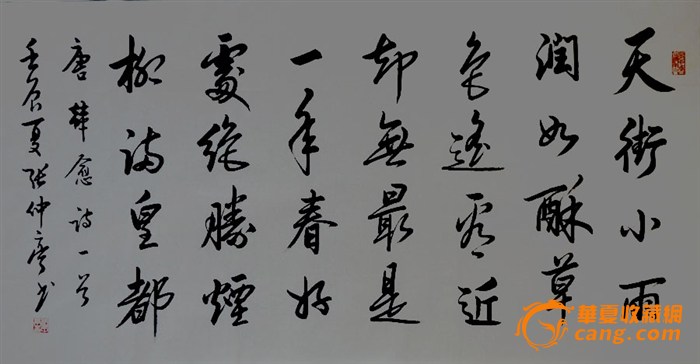 天街小雨
潤如酥草
色遙看近
却無最是
一年春好
處絶勝煙
柳满皇都
唐韓愈诗一首
壬辰夏张仲亭书
華夏收藏網
cang.com